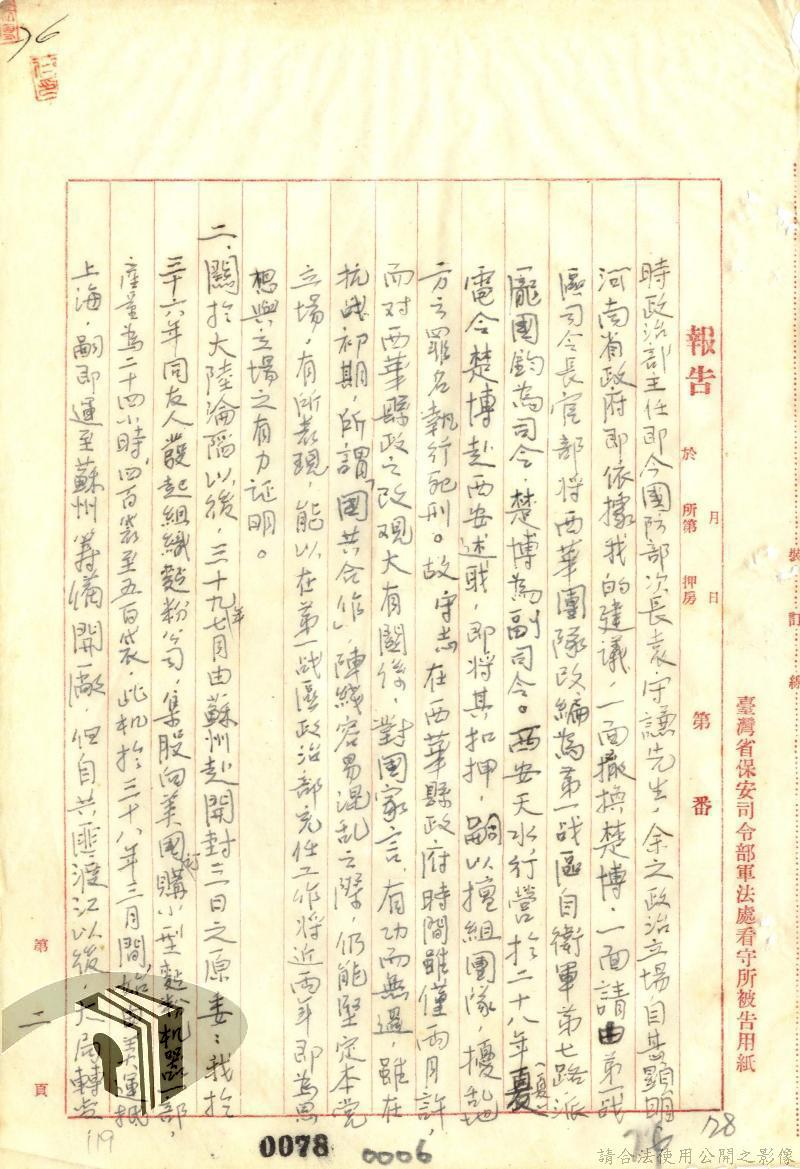 臺灣省保安司令部軍法處看守所被告用紙
裝訂線
報告 於 月 日
所第 押房
第 番
時政治部主任即今國防部次長袁守謙先生,余之政治立場自甚顯明。
河南省政府即依據我的建議,一面撤換楚博,一面請由第一战
區司令長官部將西華團隊改編為第一战區自衛軍第七路派
龐國鈞為司令,楚博為副司令。西安天水行營於二十八年夏(夏)
電令楚博赴西安述職,即將其扣押,嗣以擅組團隊,擾乱地
方之罪名執行死刑。故守志在西華縣政府時間雖僅兩月許,
而对西華縣政之改观大有關係,對國家言,有功而無過,雖在
抗战初期,所謂「國共合作」陣綫容易混乱之際,仍能堅定本党
立場,有所表現,能以在第一战區政治部充任工作將近兩年即為思
想與立場之有力证明。
二、關於大陸淪陷以後,三十九年七月由蘇州赴開封三日之原委:我於
三十六年同友人發起組織麵粉公司,集股向美國購小型麵粉机器一部,
產量為二十四小時四百袋至五百袋,此机於三十八年三月間始由美運抵
上海,嗣即運至蘇州籌備開廠,但自共匪渡江以後,大局轉
第二頁
0078
0006
119
78
76
請合法使用公開之影像